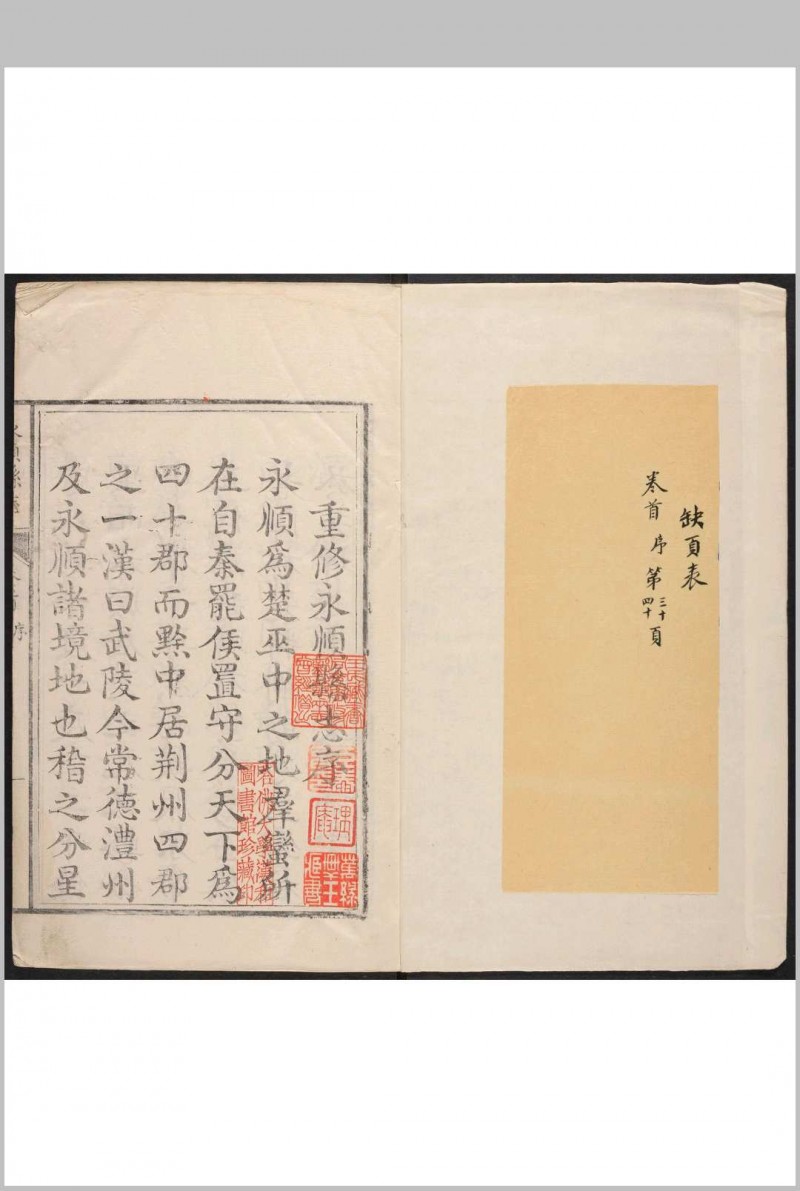 缺頁表
卷首 序 第 三十 四十 頁
重修永順縣志序
永順爲楚巫中之地羣蠻所
在自秦罷侯置守分天下爲
四十郡而黔中居荆州四郡
之一漢曰武陵今常德澧州
及永順諸境地也稽之分星
永順縣志
序
哈佛大學漢和
圖書館珍藏印